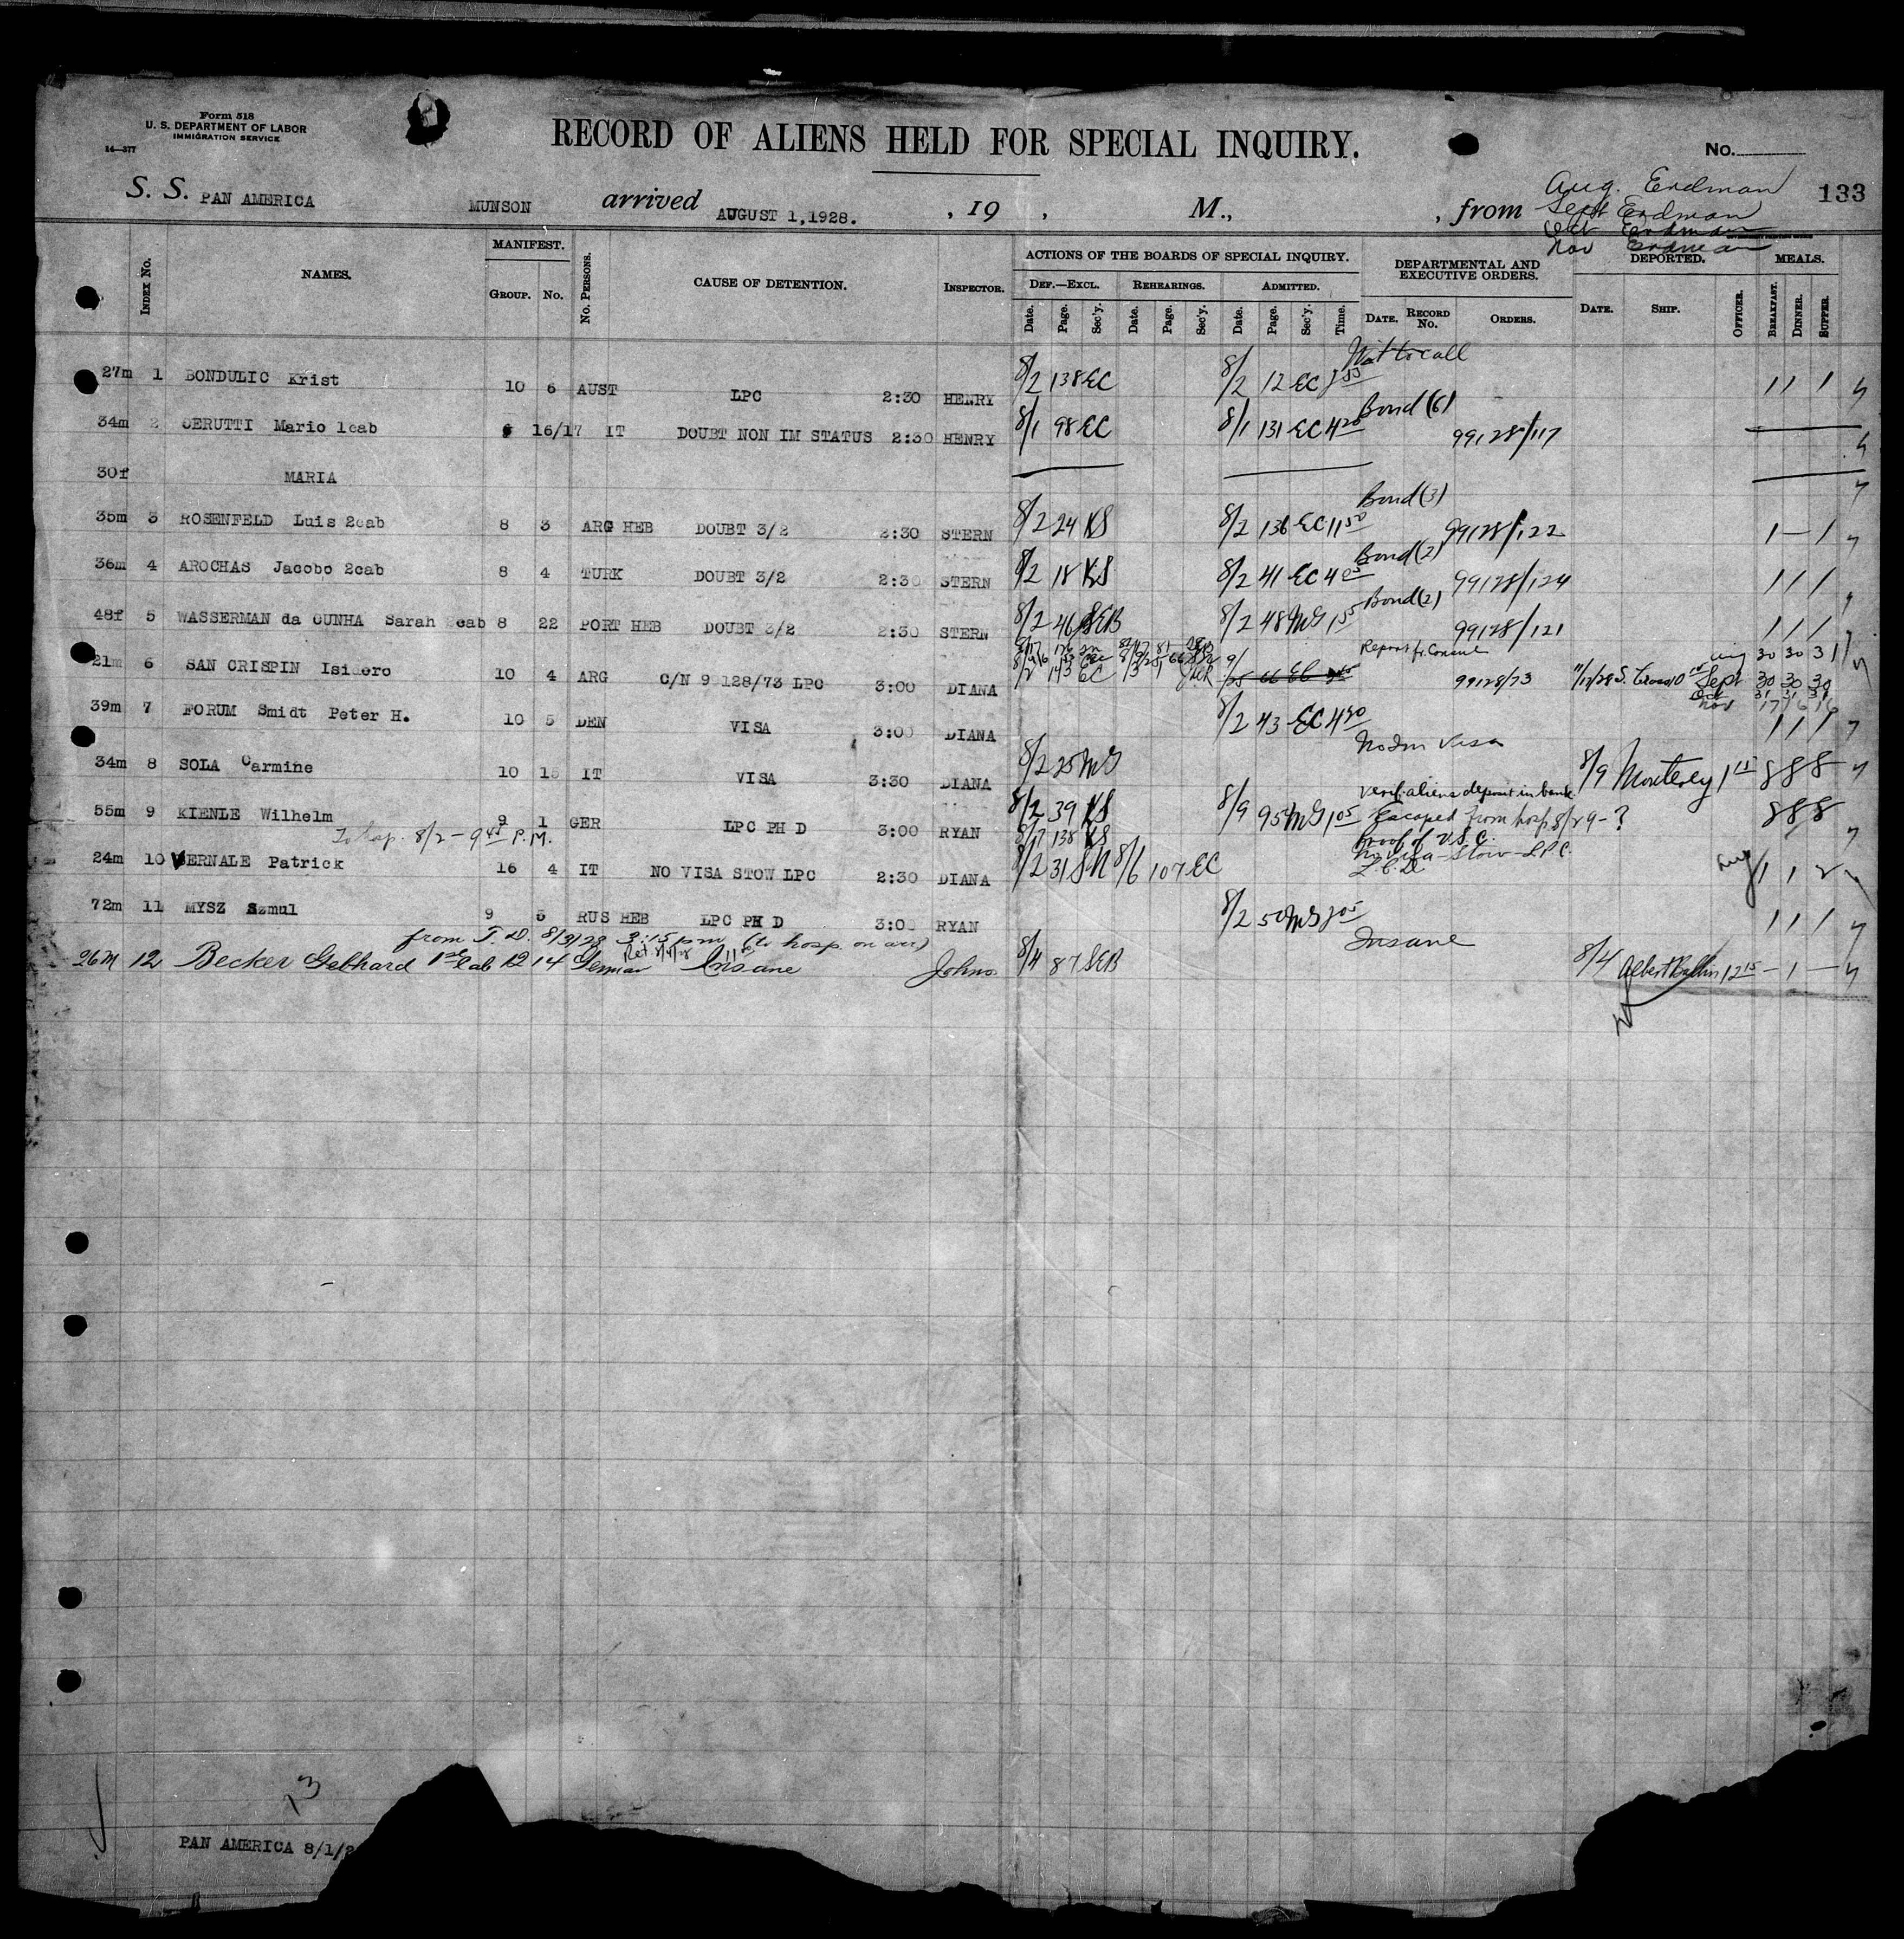 Form 518
U. S. DEPARTMENT OF LABOR
IMMIGRATION SERVICE
14—377
RECORD OF ALIENS HELD FOR SPECIAL INQUIRY.
No.
133
S. S. PAN AMERICA MUNSON arrived AUGUST 1,1928. , 19 , M., , from
Aug. Erdman
Sept Erdman
Oct Erdman
Nov Erdman
INDEX No. NAMES. MANIFEST. GROUP. No. No. PERSONS. CAUSE OF DETENTION. INSPECTOR. ACTIONS OF THE BOARDS OF SPECIAL INQUIRY. DEPARTMENTAL AND EXECUTIVE ORDERS. DEPORTED. MEALS.
DEF.—EXCL. REHEARINGS. ADMITTED.
Date. Page. Sec'y. Date. Page. Sec'y. Date. Page. Sec'y. Time. DATE. RECORD No. ORDERS. DATE. SHIP. OFFICER. BREAKFAST. DINNER. SUPPER.
27m 1 BONDULIC Krist 10 6 AUST LPC 2:30 HENRY 8/2 138 EC 8/2 12 EC 1 1 1
34m 2 CERUTTI Mario 1cab 16/17 IT DOUBT NON IM STATUS 2:30 HENRY 8/1 98 EC 8/1 131 EC 4 20 Bond (6) 99128/117
30f MARIA
35m 3 ROSENFELD Luis 2cab 8 3 ARG HEB DOUBT 3/2 2:30 STERN 8/2 24 KS 8/2 136 EC 11 50 Bond (3) 99128/122 1 — 1
36m 4 AROCHAS Jacobo 2cab 8 4 TURK DOUBT 3/2 2:30 STERN 8/2 18 KS 8/2 41 EC Bond (2) 99128/124 1 1 1
48f 5 WASSERMAN da CUNHA Sarah 2cab 8 22 PORT HEB DOUBT 3/2 2:30 STERN 8/2 46 SEB 8/2 48 MG 1 55 Bond (2) 99128/121 1 1 1
21m 6 SAN CRISPIN Isidero 10 4 ARG C/N 9 128/73 LPC 3:00 DIANA 8/2 143 EC Report fr. Consul 99128/73 11/17/28 S. Cross Aug 30 30 31
Sept 30 30 30
Oct 31 31 31
Nov 17 16 16
39m 7 FORUM Smidt Peter H. 10 5 DEN VISA 3:00 DIANA 8/2 43 EC 4 40 1 1 1
34m 8 SOLA Carmine 10 15 IT VISA 3:30 DIANA 8/2 25 MG No Im Visa 8/9 Monterey 8 8 8
55m 9 KIENLE Wilhelm 9 1 GER LPC PH D 3:00 RYAN 8/2 39 KS 8/9 95 MG 1 05 verif. aliens deposit in bank 8 8 8
To hosp. 8/2 - 9 45 P.M. 8/17 138 KS Escaped from hosp 8/29-?
Proof of U.S.C.
24m 10 VERNALE Patrick 16 4 IT NO VISA STOW LPC 2:30 DIANA 8/2 31 SN 8/6 107 EC No visa - Stow - L.P.C. Aug 1 1 2
72m 11 MYSZ Szmul 9 5 RUS HEB LPC PH D 3:00 RYAN 8/2 50 MG 1 1 1
from T. D. 8/3/28 3:15 pm (to hosp. on arr)
26m 12 Becker Gebhard 1st Cab 12 14 German Insane Johns 8/4 87 SEB Insane 8/4 Albert Ballin 12 15 — 1 —
13
PAN AMERICA 8/1/2